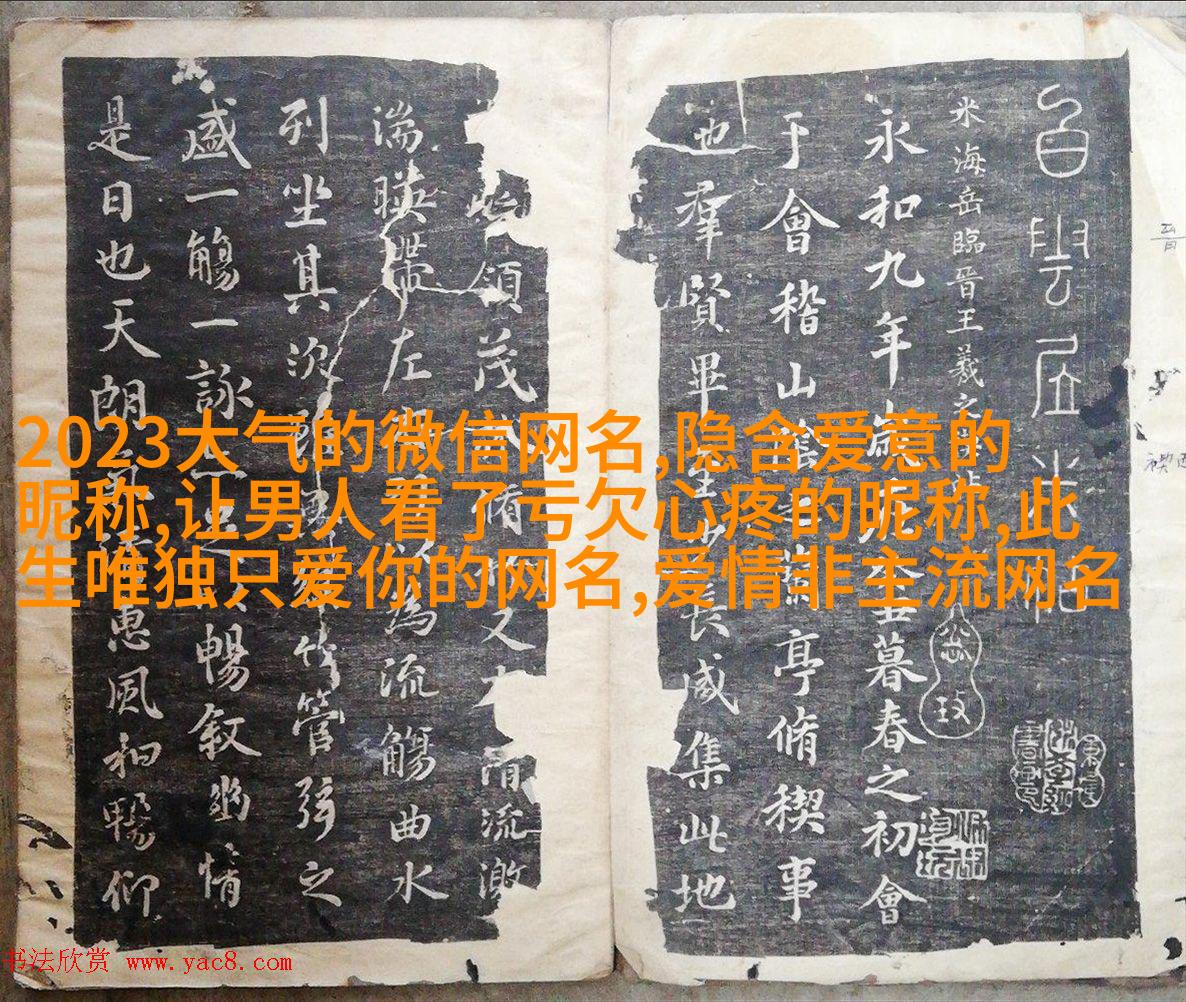 2023大气的微信网名,隐含爱意的
昵称,让男人看了亏欠心疼的昵称,此
生唯独只爱你的网名,爱情非主流网名
白雲居米帖
米海岳臨晉王羲之
永和九年歲暮春之初會
于會稽山陰亭脩禊事
也羣賢畢至少長咸集此地
領茂脩又清流激
湍暎帶左為流觴曲水
列坐其次竹管弦之
盛一觴一詠暢叙幽情
是日也天朗惠風和暢仰
书法欣赏 www.yac8.com